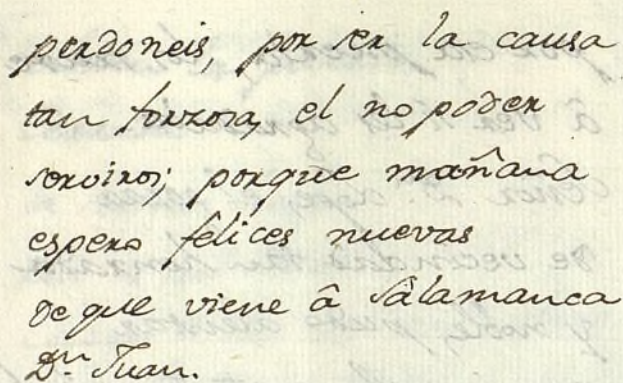 perdoneis, por ser la causa
tan forzosa, el no poder
serviros; porque mañana
espero felices nuevas
de que viene â Salamanca
Dn. Juan.